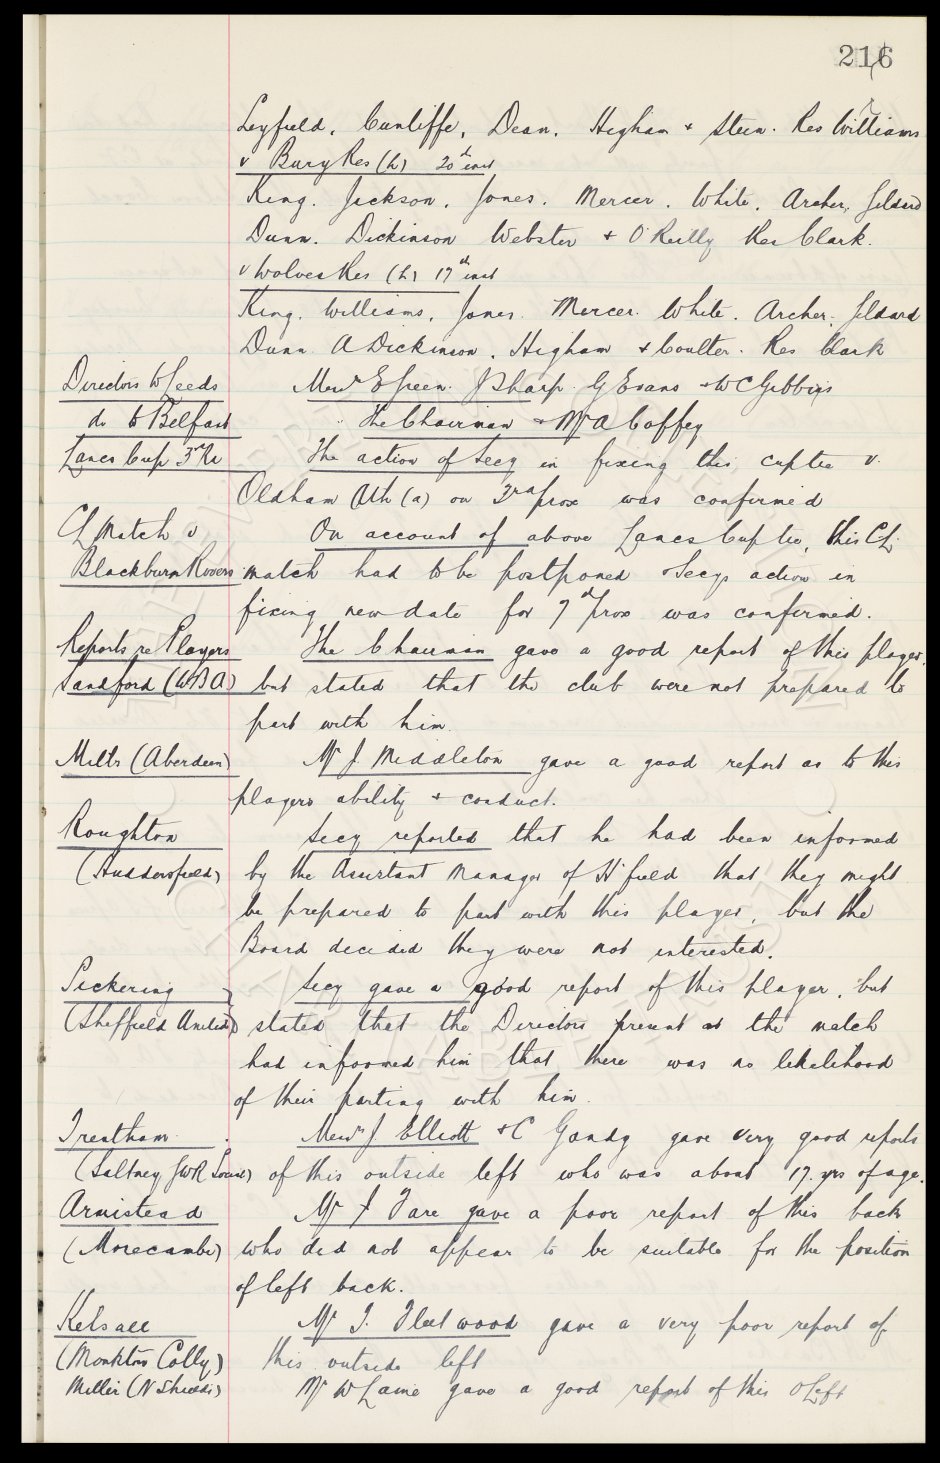 216
Leyfield, Cunliffe, Dean, Higham + Stein. Res Williams
v Bury Res (h) 20th inst
King. Jackson, Jones. Mercer. White. Archer, Geldard
Dunn. Dickinson Webster + O'Reilly Res Clark.
v Wolves Res (h) 17th inst
King. Williams, Jones. Mercer. White. Archer, Geldard
Dunn. A Dickinson, Higham + Coulter. Res Clark
Directors to Leeds Messrs E Green. J Sharp. G Evans + W C Gibbins
do to Belfast The Chairman + Mr A Coffey
Lancs Cup 3rd Rd The action of Secy in fixing this cuptie v.
Oldham Ath (a) on 3rd prox was confirmed
CL Match v On account of above Lancs Cup tie, this CL
Blackburn Rovers match had to be postponed + Secys action in
fixing new date for 7th prox was confirmed.
Reports re Players The Chairman gave a good report of this player,
Sandford (WBA) but stated that the club were not prepared to
part with him.
Mills (Aberdeen) Mr J. Middleton gave a good report as to this
players ability + conduct.
Roughton Secy reported that he had been informed
(Huddersfield) by the Assistant Manager of H'field that they might
be prepared to part with this player, but the
Board decided they were not interested.
Pickering Secy gave a good report of this player, but
(Sheffield United) stated that the Directors present at the match
had informed him that there was no likelihood
of their parting with him.
Trentham Messrs J. Elliott + C Gandy gave very good reports
(Saltney GWR Loane) of this outside left who was about 17 yrs of age.
Armistead Mr J Fare gave a poor report of this back
(Morecambe) who did not appear to be suitable for the position
of left back.
Kelsall Mr T. Fleetwood gave a very poor report of
(Monkton Colly) this outside left
Miller (N Shields) Mr W Lamie gave a good report of this O Left